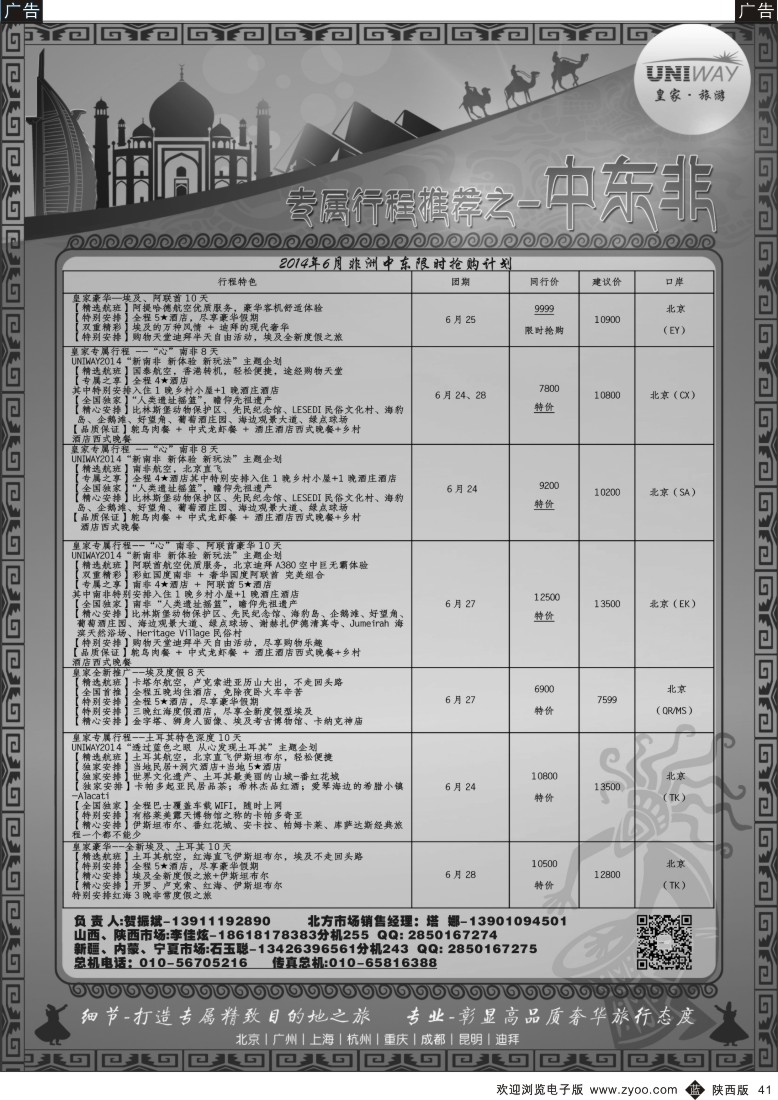 广告
广告
UNIWAY
皇家·旅游
专属行程推荐之一中东非
2014年6月非洲中东限时抢购计划
行程特色 团期 同行价 建议价 口岸
皇家豪华—埃及、阿联酋10天
【精选航班】阿提哈德航空优质服务，豪华客机舒适体验
【特别安排】全程5★酒店，尽享豪华假期
【双重精彩】埃及的万种风情 + 迪拜的现代奢华
【特别安排】购物天堂迪拜半天自由活动，埃及全新度假之旅
6月25
9999
限时抢购
10900
北京
（EY）
皇家专属行程 --“心”南非8天
UNIWAY2014“新南非 新体验 新玩法”主题企划
【精选航班】国泰航空，香港转机，轻松便捷，途经购物天堂
【专属之享】全程4★酒店
其中特别安排入住1晚乡村小屋+1晚酒庄酒店
【全国独家】“人类遗址摇篮”，瞻仰先祖遗产
【精心安排】比林斯堡动物保护区、先民纪念馆、LESEDI民俗文化村、海豹
岛、企鹅滩、好望角、葡萄酒庄园、海边观景大道、绿点球场
【品质保证】鸵鸟肉餐 + 中式龙虾餐 + 酒庄酒店西式晚餐+乡村
酒店西式晚餐
6月24、28
7800
特价
10800
北京（CX）
皇家专属行程 --“心”南非8天
UNIWAY2014“新南非 新体验 新玩法”主题企划
【精选航班】南非航空，北京直飞
【专属之享】全程4★酒店其中特别安排入住1晚乡村小屋+1晚酒庄酒店
【全国独家】“人类遗址摇篮”，瞻仰先祖遗产
【精心安排】比林斯堡动物保护区、先民纪念馆、LESEDI民俗文化村、海豹
岛、企鹅滩、好望角、葡萄酒庄园、海边观景大道、绿点球场
【品质保证】鸵鸟肉餐 + 中式龙虾餐 + 酒庄酒店西式晚餐+乡村
酒店西式晚餐
6月24
9200
特价
10200
北京（SA）
皇家专属行程--“心”南非、阿联酋豪华10天
UNIWAY2014“新南非 新体验 新玩法”主题企划
【精选航班】阿联酋航空优质服务，北京迪拜A380空中巨无霸体验
【双重精彩】彩虹国度南非 + 奢华国度阿联酋 完美组合
【专属之享】南非4★酒店 + 阿联酋5★酒店
其中南非特别安排入住1晚乡村小屋+1晚酒庄酒店
【全国独家】南非“人类遗址摇篮”，瞻仰先祖遗产
【精心安排】比林斯堡动物保护区、先民纪念馆、海豹岛、企鹅滩、好望角、
葡萄酒庄园、海边观景大道、绿点球场、谢赫扎伊德清真寺、Jumeirah 海
滨天然浴场、Heritage Village民俗村
【特别安排】购物天堂迪拜半天自由活动，尽享购物乐趣
【品质保证】鸵鸟肉餐 + 中式龙虾餐 + 酒庄酒店西式晚餐+乡村
酒店西式晚餐
6月27
12500
特价
13500
北京（EK）
皇家全新推广--埃及度假8天
【精选航班】卡塔尔航空，卢克索进亚历山大出，不走回头路
【全国首推】全程五晚均住酒店，免除夜卧火车辛苦
【特别安排】全程5★酒店，尽享豪华假期
【特别安排】三晚红海度假酒店，尽享全新度假型埃及
【精心安排】金字塔、狮身人面像、埃及考古博物馆、卡纳克神庙
6月27
6900
特价
7599
北京
（QR/MS）
皇家专属行程--土耳其特色深度10天
UNIWAY2014“透过蓝色之眼 从心发现土耳其”主题企划
【精选航班】土耳其航空，北京直飞伊斯坦布尔，轻松便捷
【独家安排】当地民居+洞穴酒店+当地5★酒店
【独家安排】世界文化遗产、土耳其最美丽的山城-番红花城
【独家安排】卡帕多起亚民居品茶；希林杰品红酒；爱琴海边的希腊小镇
-Alacati
【全国独家】全程巴士覆盖车载WIFI，随时上网
【特别安排】有格莱美露天博物馆之称的卡帕多奇亚
【精心安排】伊斯坦布尔、番红花城、安卡拉、帕姆卡莱、库萨达斯经典旅
程一个都不能少
6月24
10800
特价
13500
北京
（TK）
皇家豪华--全新埃及、土耳其10天
【精选航班】土耳其航空，红海直飞伊斯坦布尔，埃及不走回头路
【特别安排】全程5★酒店，尽享豪华假期
【精心安排】埃及全新度假之旅+伊斯坦布尔
【精心安排】开罗、卢克索、红海、伊斯坦布尔
特别安排红海3晚非常度假之旅
6月28
10500
特价
12800
北京
（TK）
负 责 人:贺振斌-13911192890 北方市场销售经理：塔 娜-13901094501
山西、陕西市场:李佳炫-18618178383分机255 QQ: 2850167274
新疆、内蒙、宁夏市场:石玉聪-13426396561分机243 QQ: 2850167275
总机电话：010-56705216 传真总机:010-65816388
细节-打造专属精致目的地之旅 专业-彰显高品质奢华旅行态度
北京｜广州｜上海｜杭州｜重庆｜成都｜昆明｜迪拜
欢迎浏览电子版 www.zyoo.com 蓝 陕西版 41